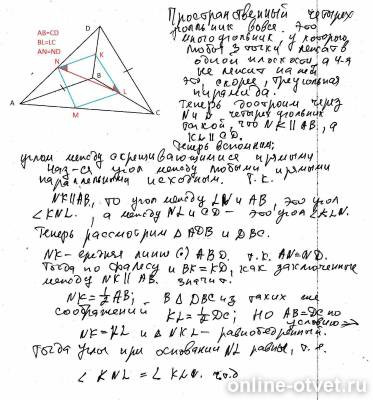 Пространственный четырех
угольник вовсе. Это
многоугольник, у которого
любые 3 точки лежат в
одной плоскости а 4-я
не лежит на ней
это, скорее, треугольная
пирамида.
Теперь построим через
N и L четырехугольник
такой что NK∥AB, а
KL∥CD.
Теперь вспомним:
углом между скрещивающимися прямыми
наз-ся угол между любыми прямыми
параллельными исходным. т.к.
NK∥AB, то угол между LN и AB, это угол
∠KNL, а между NL и CD – это угол ∠KLN.
Теперь рассмотрим △ADB и DBC.
NK – средняя линия ABD. т.к. AN=ND.
Тогда по Фалесу и BK=KD, как заключенные
между NK∥AB. значит.
NK=½AB; В △DBC из таких же
соображений KL=½DC; НО AB=DC по
условию
NK=KL и △NKL – равнобедренный.
Тогда углы при основании NL равны, т.е.
∠KNL=∠KLN. ч.т.д
AB=CD
BL=LC
AN=ND
D
N
K
B
L
A
M
C
online-otvet.ru